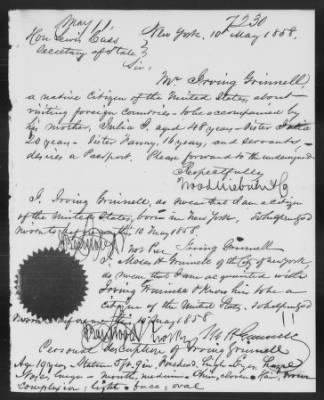 7230
May 11
New York. 10 May 1858.
Hon Lewis Cass
Secretary of State
Sir,
Mr Irving Grinnell,
a native Citizen of the United States about
visiting foreign Countries - to be accompanied by
his mother, Julia I. aged 40 years - Sister Julia
20 years - Sister Fanny, 16 years, and servants,
desires a Passport. Please forward to the undersigned
Respectfully
I, Irving Grinnell, do swear that I am a citizen
of the United States, born in New York. So help me God
Sworn to before me this 10 May 1858.
Not Pub Irving Grinnell
I, Moses H Grinnell of the City of New York
do swear that I am acquainted with
Irving Grinnell & know him to be a
Citizen of the United States. So help me God
Sworn before me this 10 May 1858
M H Grinnell
Personal description of Irving Grinnell
Age 19 years, Stature 5 ft 9 in, Forehead, high, Eyes Hazel
Nose, large - mouth, medium, Chin, Hair, brown
Complexion, light - face, oval